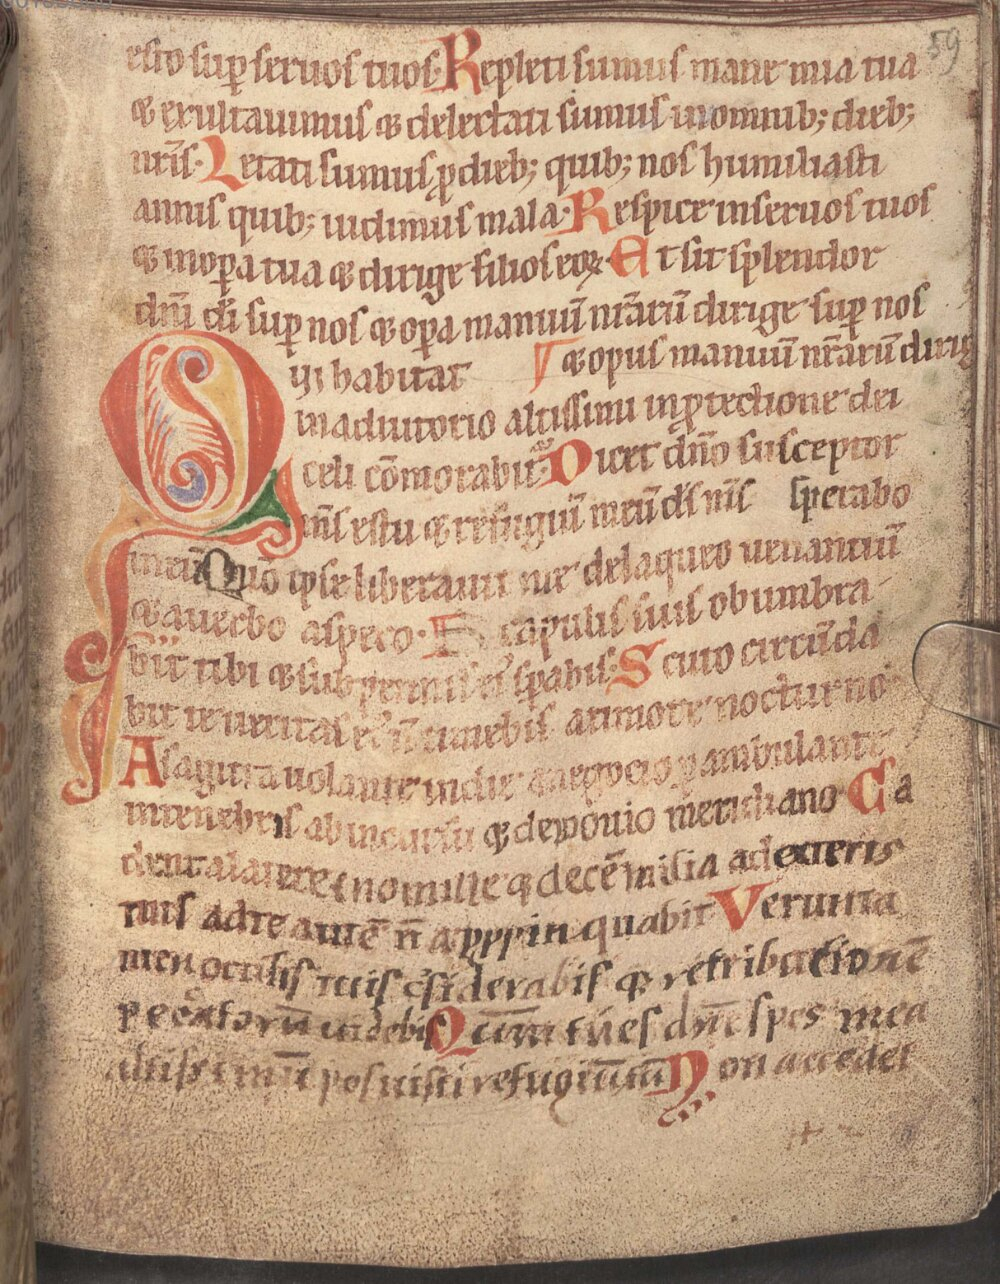 59
esto sup̄ seruos tuos. Repleti sumus mane mīa tua
& exultauimus & delectati sumus inomnib; dieb;
nr̄is. Letati sumus ꝓ dieb; quib; nos humiliasti
annis quib; uidimus mala. Respice inseruos tuos
& inop̄a tua & dirige filios eoꝝ. Et sit splendor
dn̄i dī sup̄ nos & op̄a manuū nr̄arū dirige sup̄ nos
Qui habitat & opus manuū nr̄arū dirig
inadiutorio altissimi inꝓtectione dei
celi cōmorabit̄. Dicet dn̄o susceptor
m̄s es tu & refugiū meū dš m̄s sperabo
ineū Qūo ipse liberauit me delaqueo uenantiū
& auerbo aspero. S capulis suis obumbra
bit tibi & sub pennis ei᷒ sp̄abis. Scuto circūda
bit te ueritas ei᷒ n̄ timebis atimore nocturno
Asagitta uolante indie anegocio ꝑambulante
intenebris abincursu & demonio meridiano Ca
dent alatere tuo mille & decē milia adexteris
tuis adte autē n̄ appropinquabit Verunta
men oculis tuis c̄siderabis & retributionē
peccatorū uidebis Qūm tu es dn̄e spes mea
altissimū posuisti refugiū tuū Non accedet